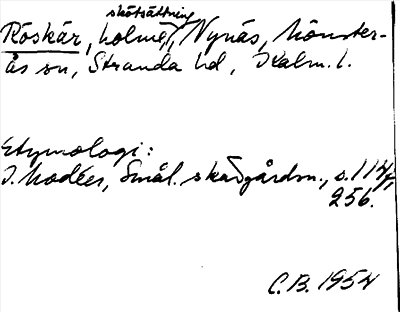 skötsättning
Röskär, holme, Nynäs, Mönster-
ås sn, Stranda hd, Kalm. l.
Etymologi:
I. Modéer, Smål. skärgårdsn., s. 114,
256.
C.B. 1954